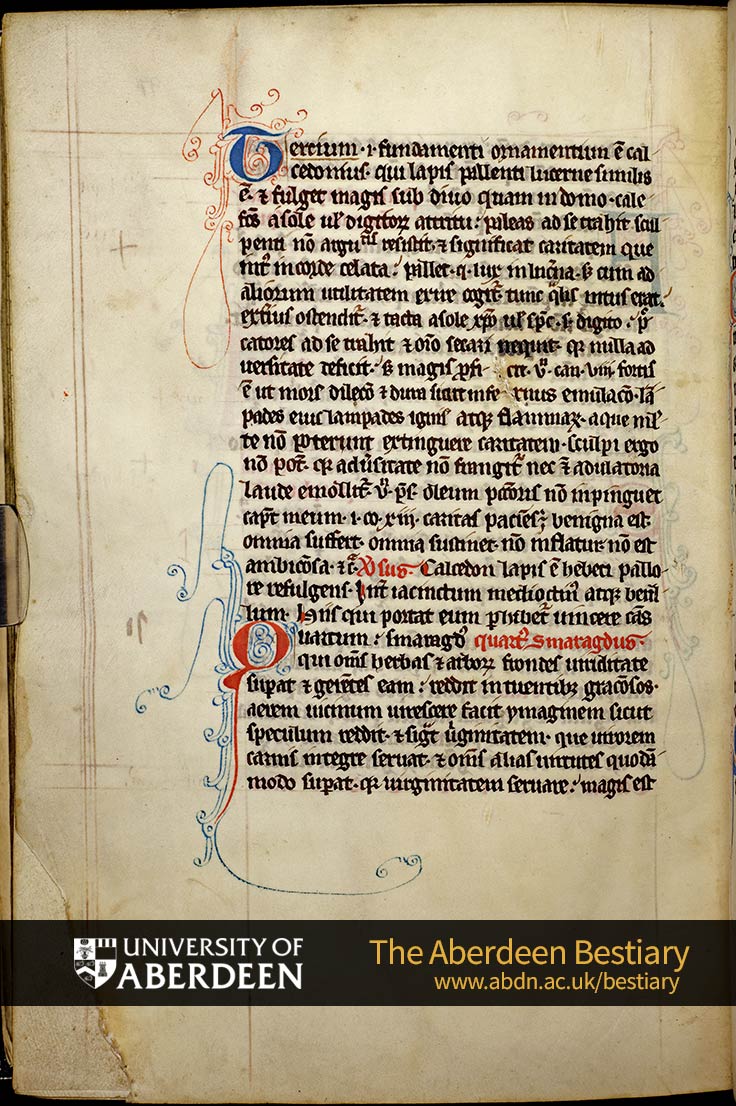 Tercium · i · fundamenti ornamentum ē cal
cedonius · qui lapis pallenti lucerne similis
ē · ⁊ fulget magis sub diuo quam in domo · cale
fc̄s a sole ul' digitorꝝ attritu : paleas ad se trahit · scul
penti nō argutiis resistit · ⁊ significat caritatem que
int' in corde celata : pallet · q · lux in lucerna · s; cum ad
aliorum utilitatem exire cogit̄ tunc q̄lis intus erat ·
exterius ostendit̄ · ⁊ tacta a sole xp̄o ul' sp̄c · s · digito · p̄
catores ad se trahit ⁊ oīo secari nequit · qr nulla ad
uersitate deficit · s; magis profi cit · v̄ · can · viii · fortis
ē ut mors dilecō ⁊ dura sicut infe rnus emulacō · lā
pades eius lampades ignis atq; flammaꝝ · aque ml'
te nō poterunt extinguere caritatem · sculpi ergo
nō pot̄ · qr adūsitate nō frangit̄ nec ī adulatoria
laude emollit̄ · v̄ · ps̄ · oleum pcc̄oris nō inpinguet
cap̄t meum · i · co · xiii · caritas paciēs; benigna est ·
omnia suffert · omnia sustinet · nō inflatur · nō est
ambicōsa · ⁊c̄ · Vsus · Calcedon lapis ē hebeti pallo
re refulgens · Int̄ iacinctum mediocrit̄ atq; beril
lum · Hiis qui portat eum phibet̄ uincere cās
Quartum : smaragdꝰ quartꝰ Smaragdus ·
qui om̄s herbas ⁊ arborꝝ frondes uiriditate
sup̄at ⁊ gerētes eam : reddit intuentibꝫ gracōsos ·
aerem uicinum uirescere facit ymaginem sicut
speculum reddit · ⁊ sigt̄ ūginitatem · que uirorem
carnis integre seruat · ⁊ om̄s alias uirtutes quodā
modo sup̄at · qr uirginitatem seruare : magis est
UNIVERSITY OF
ABERDEEN
The Aberdeen Bestiary
www.abdn.ac.uk/bestiary